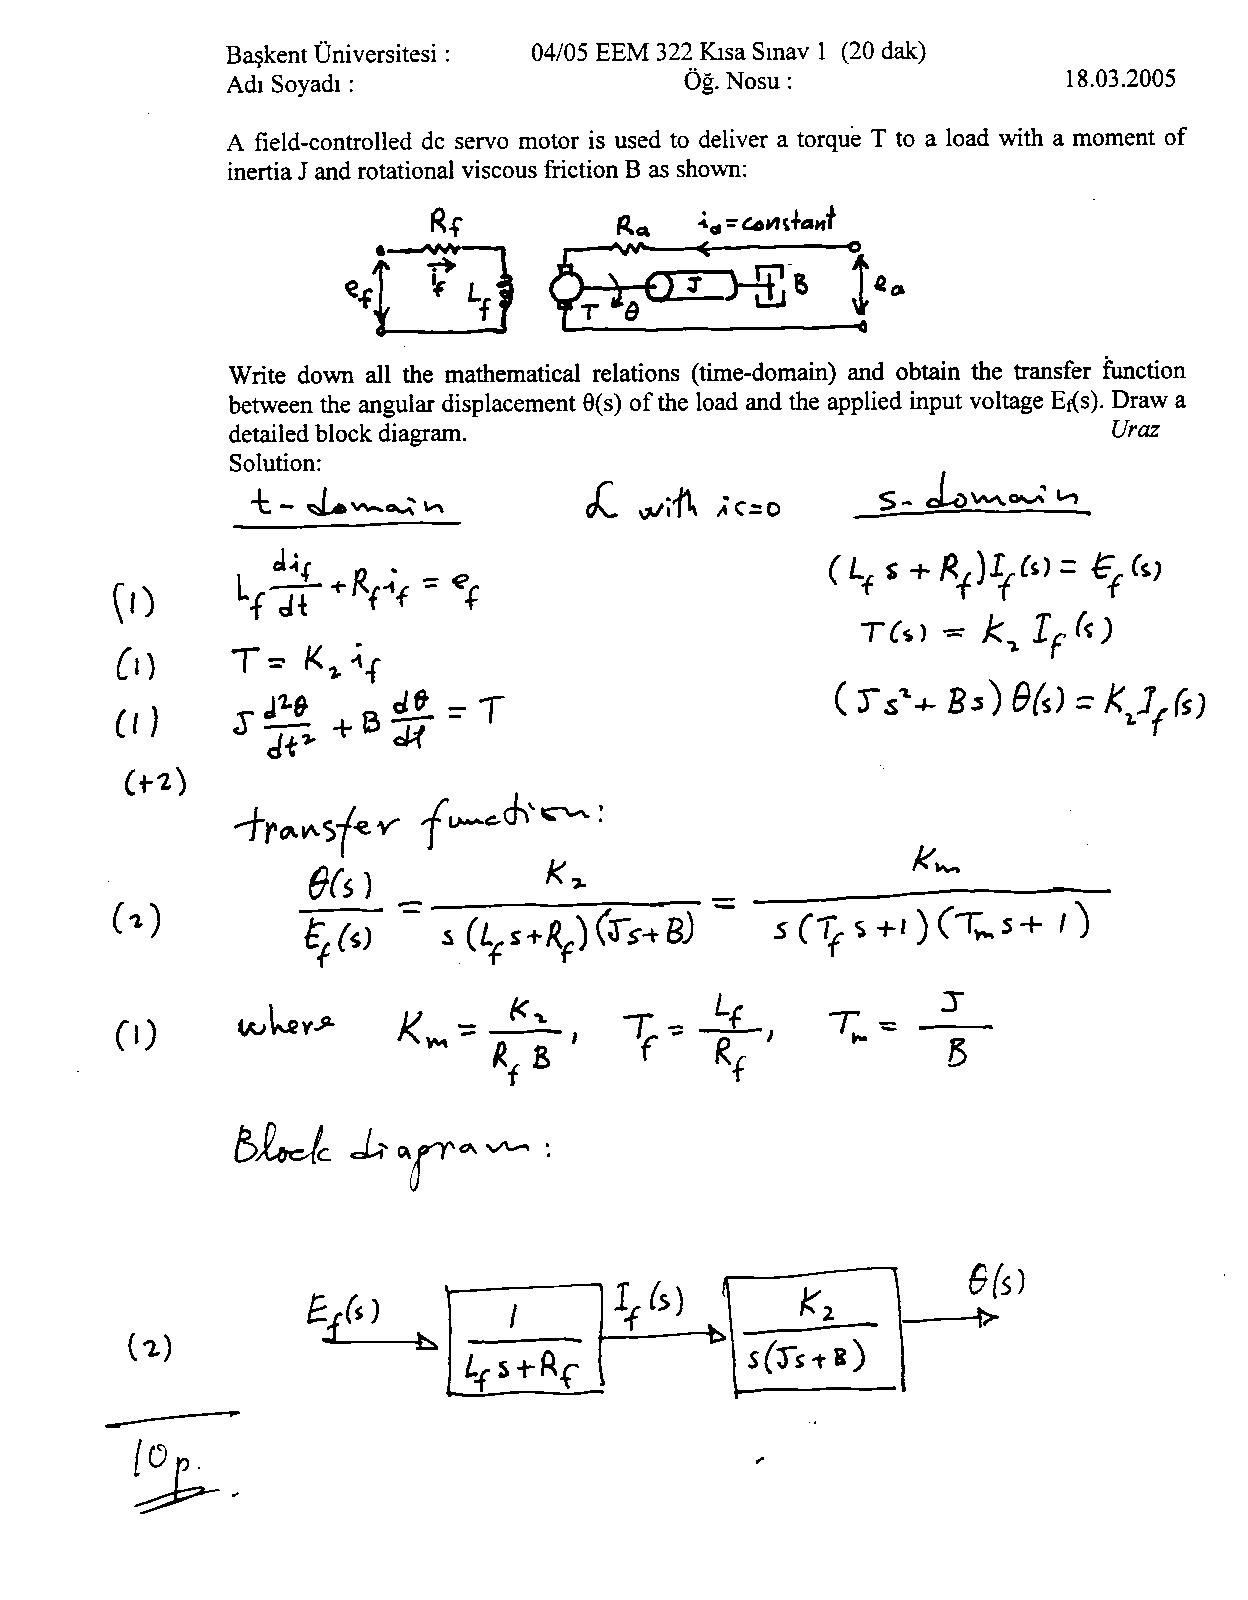 Başkent Üniversitesi : 04/05 EEM 322 Kısa Sınav 1 (20 dak)
Adı Soyadı : Öğ. Nosu : 18.03.2005
A field-controlled dc servo motor is used to deliver a torque T to a load with a moment of
inertia J and rotational viscous friction B as shown:
R_f R_a i_a = constant
e_f i_f L_f T θ J B e_a
Write down all the mathematical relations (time-domain) and obtain the transfer function
between the angular displacement θ(s) of the load and the applied input voltage E_f(s). Draw a
detailed block diagram. Uraz
Solution:
t-domain ℒ with ic=0 s-domain
(1) L_f di_f/dt + R_f i_f = e_f (L_f s + R_f) I_f(s) = E_f(s)
(1) T = K_2 i_f T(s) = K_2 I_f(s)
(1) J d²θ/dt² + B dθ/dt = T (Js² + Bs) θ(s) = K_2 I_f(s)
(+2)
transfer function:
(2) θ(s)/E_f(s) = K_2/(s(L_f s+R_f)(Js+B)) = K_m/(s(T_f s+1)(T_m s+1))
(1) where K_m = K_2/(R_f B), T_f = L_f/R_f, T_m = J/B
Block diagram:
(2) E_f(s) 1/(L_f s+R_f) I_f(s) K_2/(s(Js+B)) θ(s)
10 p.